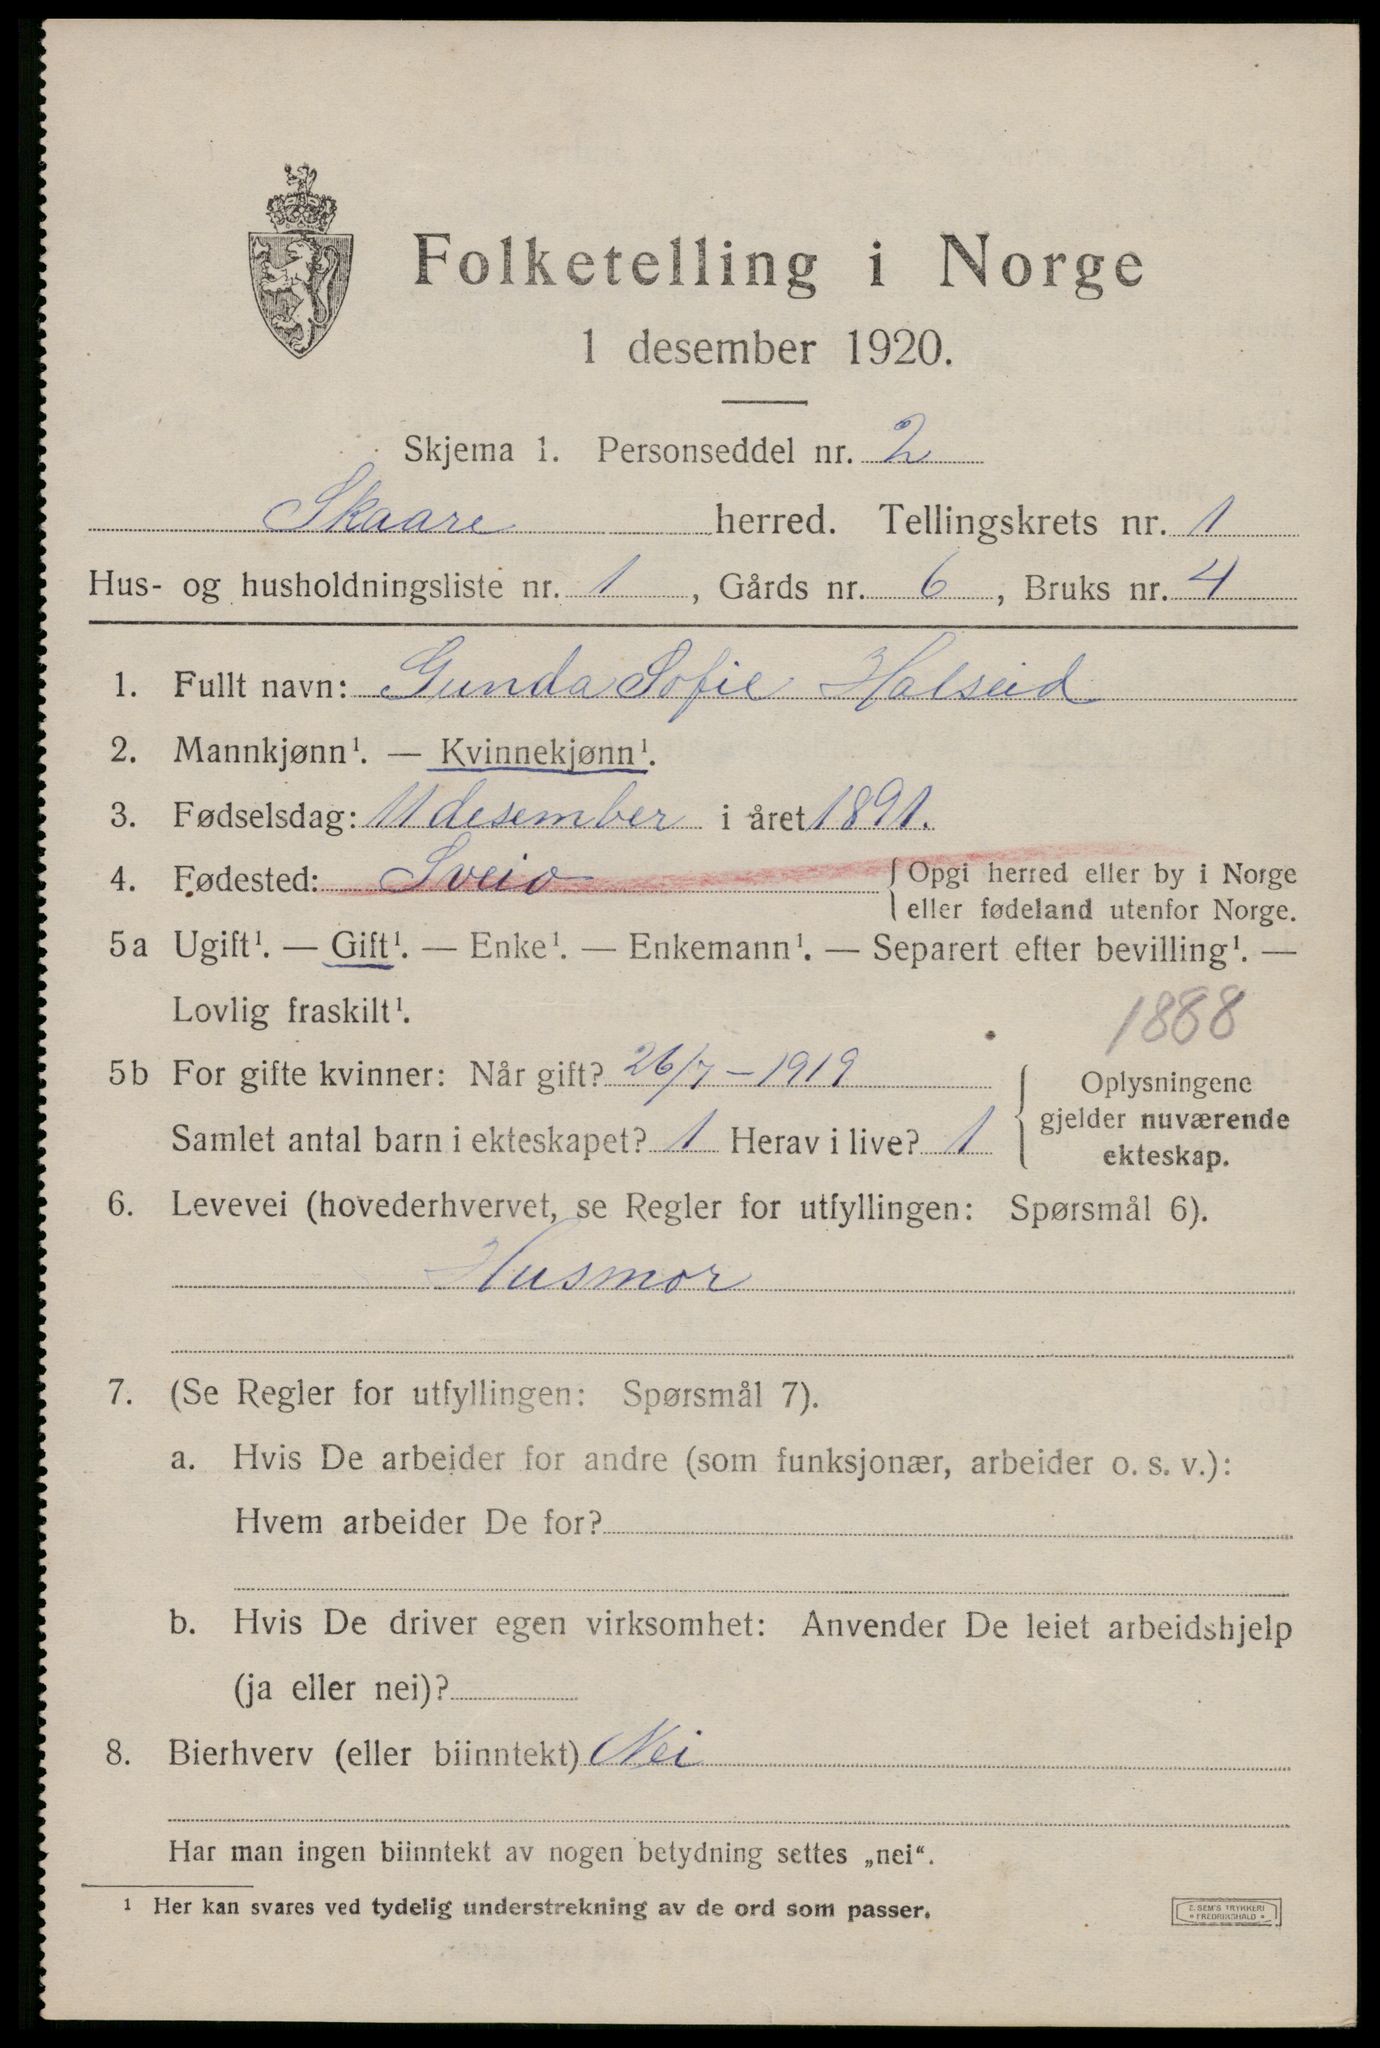 Folketelling i Norge
1 desember 1920.
Skjema 1. Personseddel nr. 2
Skaare herred. Tellingskrets nr. 1
Hus- og husholdningsliste nr. 1, Gårds nr. 6, Bruks nr. 4
1. Fullt navn: Gunda Sofie Halseid
2. Mannkjønn¹. — Kvinnekjønn¹.
3. Fødselsdag: 11 desember i året 1891.
4. Fødested: Sveio { Opgi herred eller by i Norge
eller fødeland utenfor Norge.
5a Ugift¹. — Gift¹. — Enke¹. — Enkemann¹. — Separert efter bevilling¹. —
Lovlig fraskilt¹.
1888
5b For gifte kvinner: Når gift? 26/7 – 1919
Samlet antal barn i ekteskapet? 1 Herav i live? 1
{ Oplysningene
gjelder nuværende
ekteskap.
6. Levevei (hovederhvervet, se Regler for utfyllingen: Spørsmål 6).
Husmor
7. (Se Regler for utfyllingen: Spørsmål 7).
a. Hvis De arbeider for andre (som funksjonær, arbeider o. s. v.):
Hvem arbeider De for?
b. Hvis De driver egen virksomhet: Anvender De leiet arbeidshjelp
(ja eller nei)?
8. Bierhverv (eller biinntekt) Nei
Har man ingen biinntekt av nogen betydning settes „nei“.
¹ Her kan svares ved tydelig understrekning av de ord som passer.
E. SEM'S TRYKKERI
• FREDRIKSHALD •